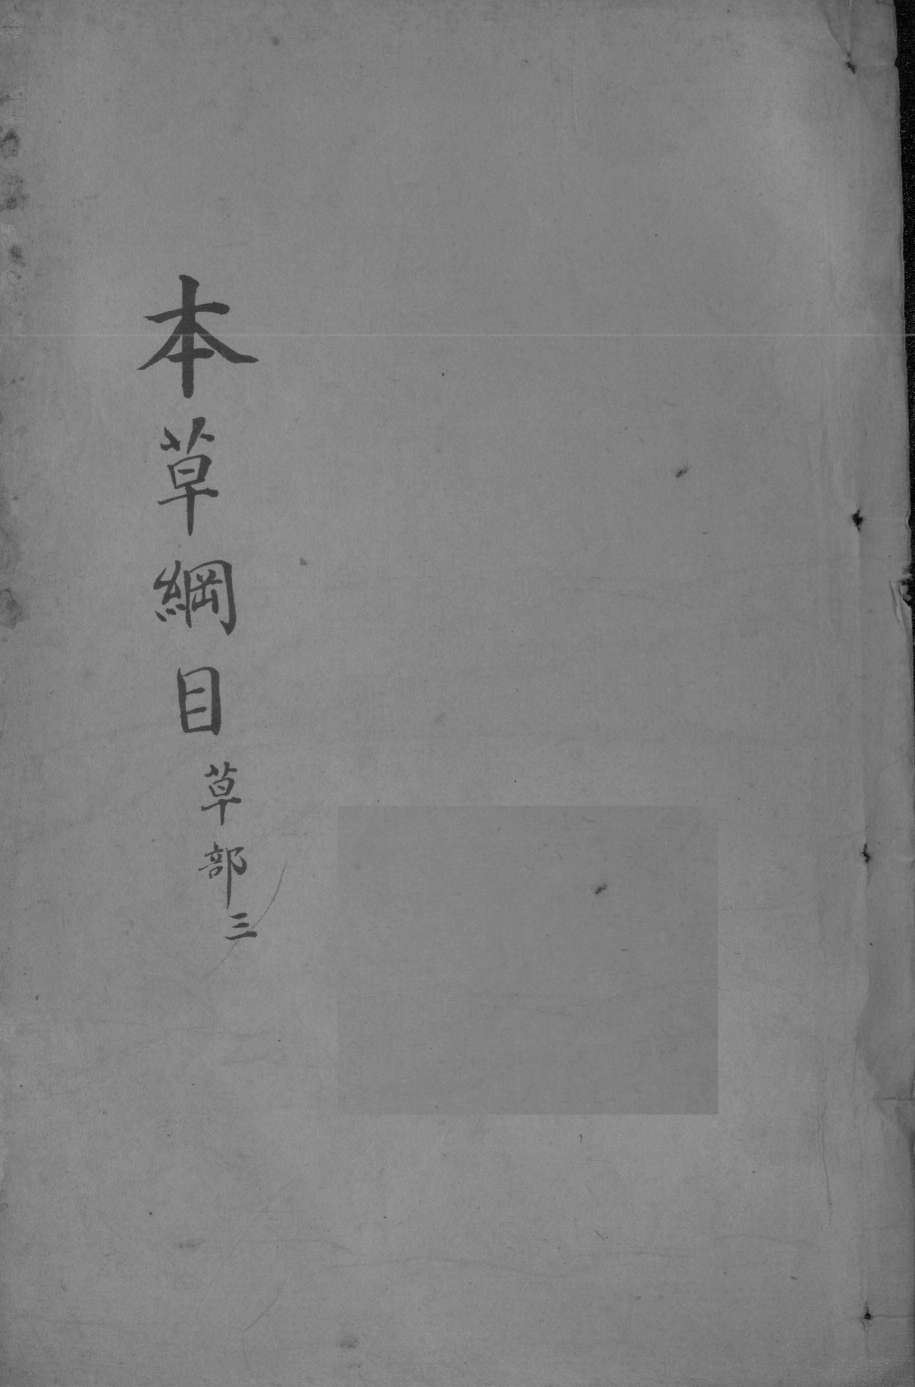 本草綱目草部三